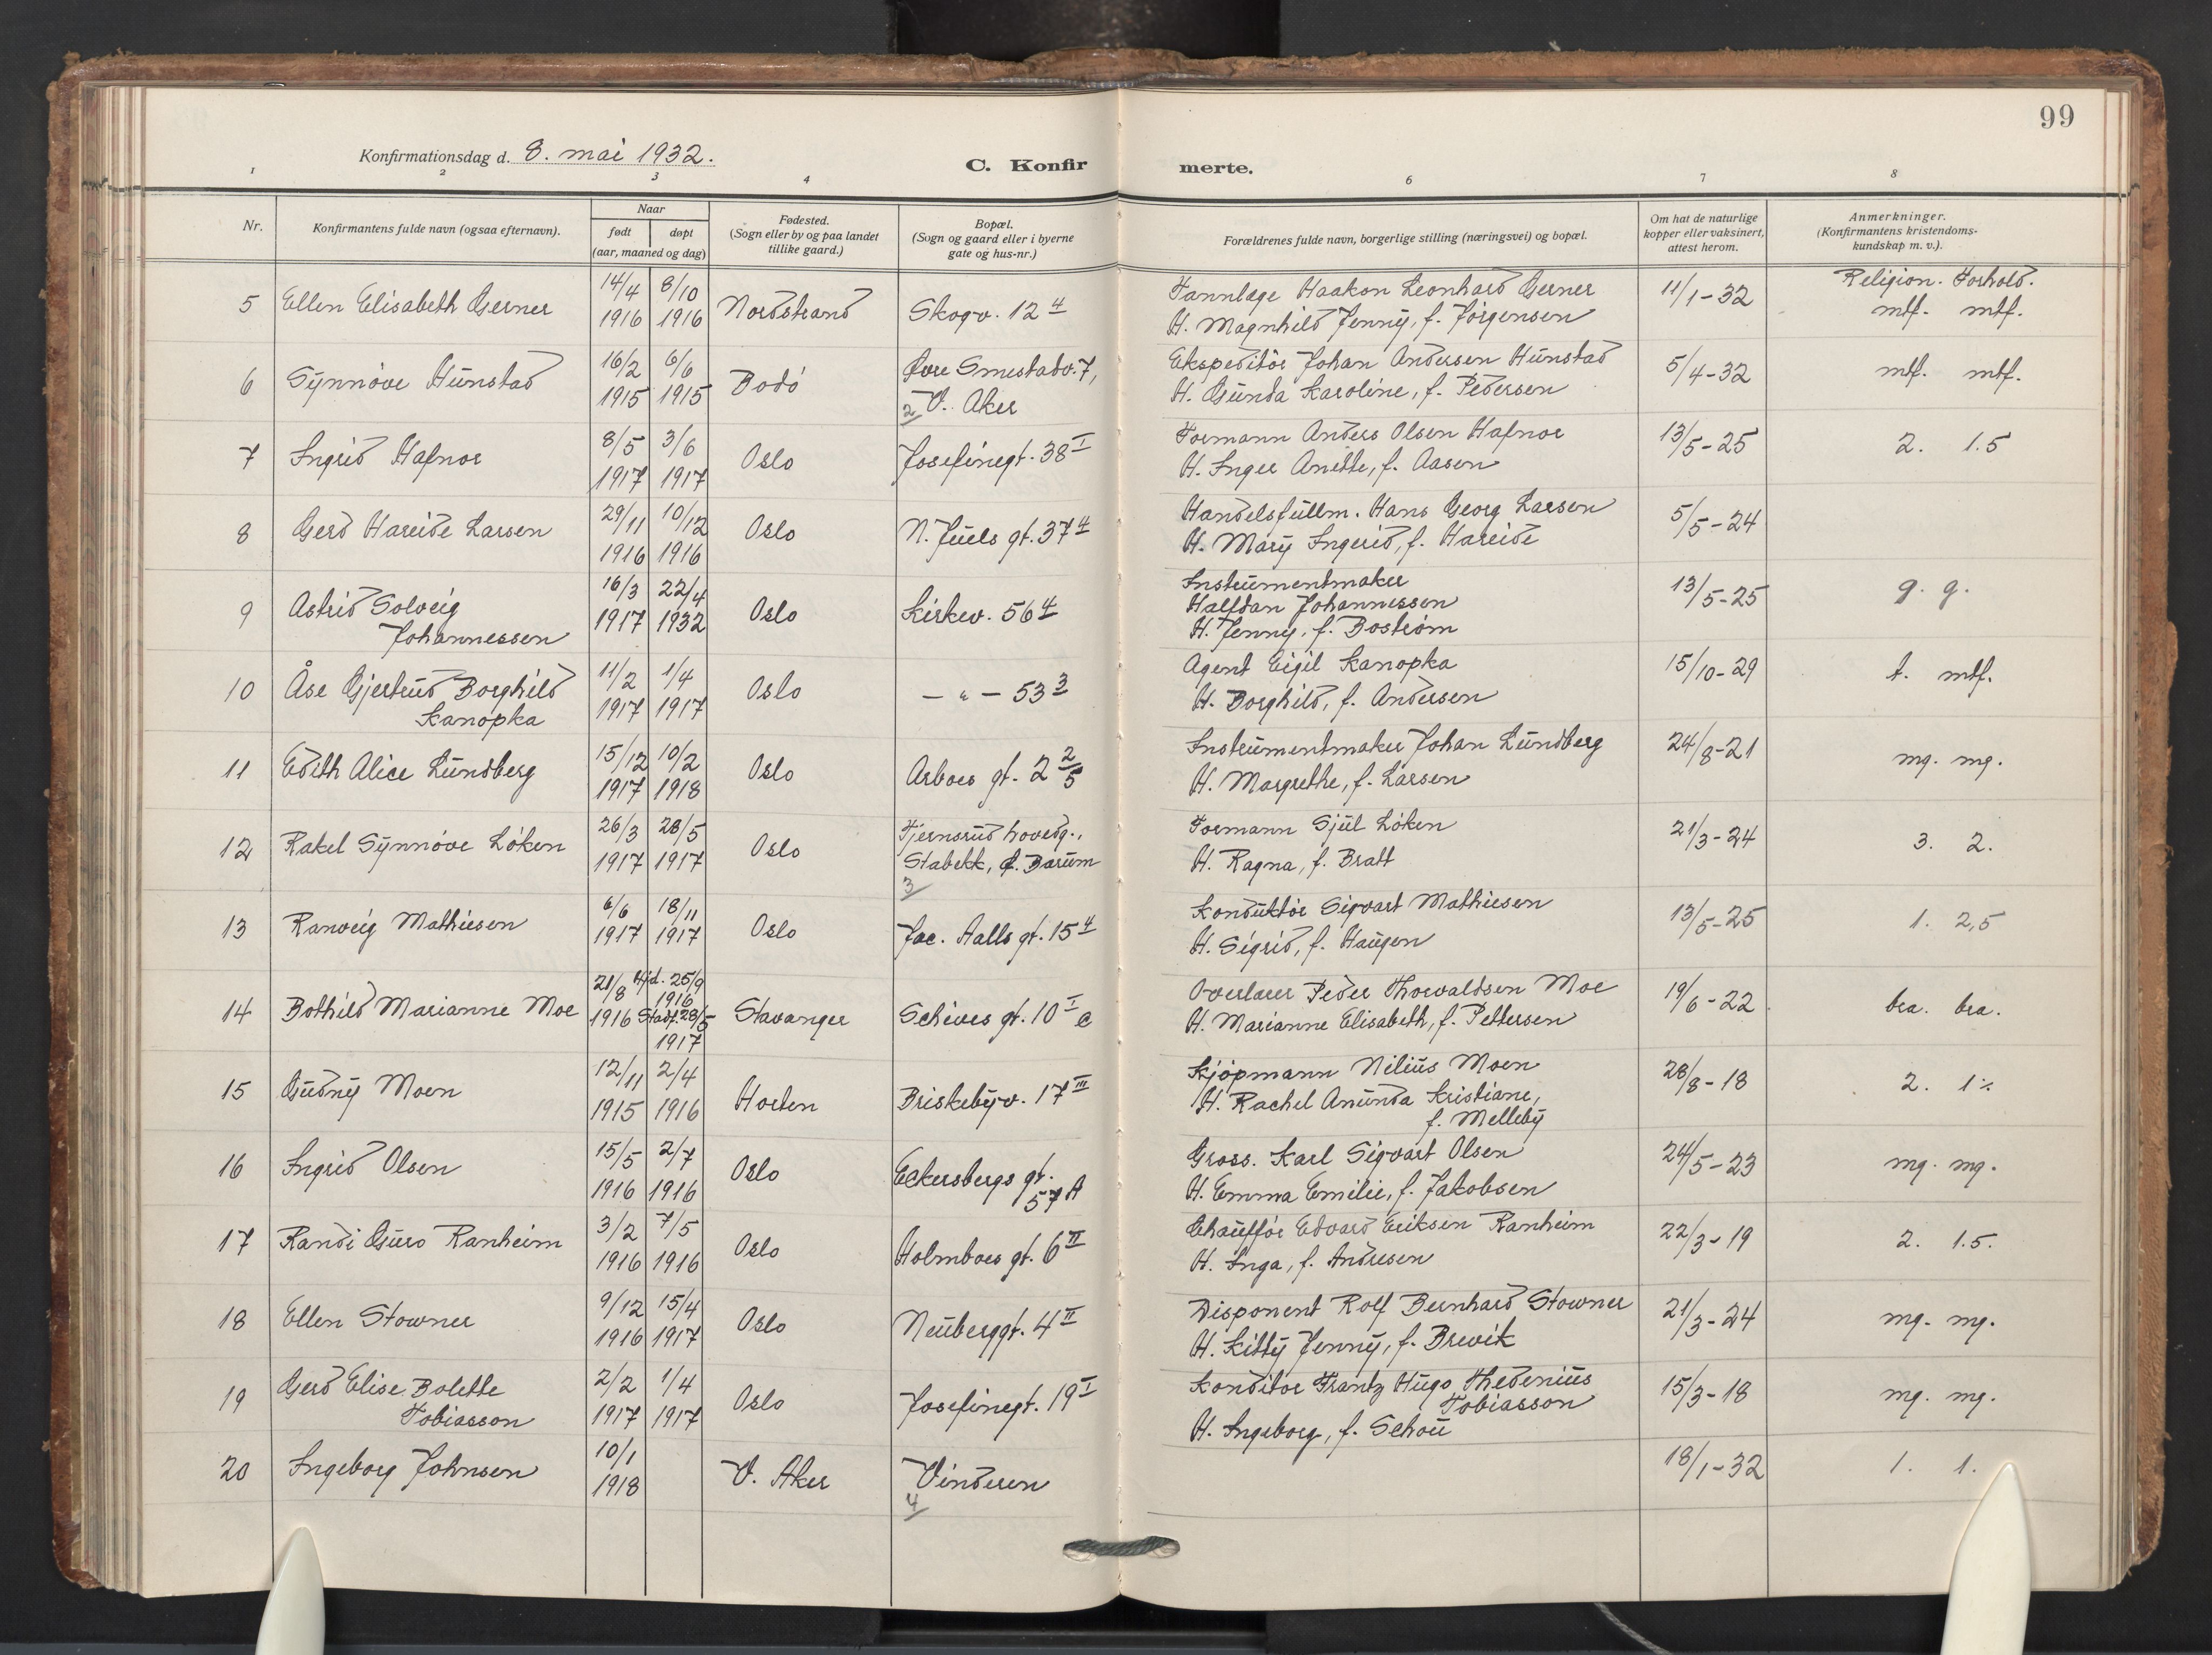 99
Konfirmationsdag d. 8. mai 1932.
C. Konfir merte.
1 2 3 4 6 7 8
Nr.
Konfirmantens fulde navn (ogsaa efternavn).
Naar
født døpt
(aar, maaned og dag)
Fødested.
(Sogn eller by og paa landet
tillike gaard.)
Bopæl.
(Sogn og gaard eller i byerne
gate og hus-nr.)
Forældrenes fulde navn, borgerlige stilling (næringsvei) og bopæl.
Om hat de naturlige
kopper eller vaksinert,
attest herom.
Anmerkninger.
(Konfirmantens kristendoms-
kundskap m. v.).
Religion. Forhold.
5 Ellen Elisabeth Gerner 14/4 1916 8/10 1916 Nordstrand Skogv. 12 4
Tannlæge Haakon Leonhard Gerner
H. Magnhild Jenny, f. Jörgensen
11/1-32 mtf. mtf.
6 Synnöve Hunstad 16/2 1915 6/6 1915 Bodö Övre Smestadv. 7,
2 V. Aker
Ekspeditör Johan Andersen Hunstad
H. Gunda Karoline, f. Pedersen
5/4-32 mtf. mtf.
7 Ingrid Hafnor 8/5 1917 3/6 1917 Oslo Josefinegt. 38 I
Formann Anders Olsen Hafnor
H. Inger Anette, f. Aasen
13/5-25 2. 1.5
8 Gerd Hareide Larsen 29/11 1916 10/12 1916 Oslo N. Juels gt. 37 4
Handelsfullm. Hans Georg Larsen
H. Mary Ingerid, f. Hareide
5/5-24
9 Astrid Solveig
Johannessen 16/3 1917 22/4 1932 Oslo Kirkev. 56 4
Instrumentmaker
Halfdan Johannessen
H. Jenny, f. Boström
13/5-25 g. g.
10 Åse Gjertrud Borghild
Kanopka 11/2 1917 1/4 1917 Oslo - " - 53 3
Agent Eigil Kanopka
H. Borghild, f. Andersen
15/10-29 t. mtf.
11 Edith Alice Lundberg 15/12 1917 10/2 1918 Oslo Arboes gt. 2 2/5
Instrumentmaker Johan Lundberg
H. Margrethe, f. Larsen
24/8-21 mg. mg.
12 Rakel Synnöve Löken 26/3 1917 28/5 1917 Oslo Tjernsrud hovedg.,
Stabekk, Ø. Bærum
3
Formann Sjul Löken
H. Ragna, f. Bratt
21/3-24 3. 2.
13 Ranveig Mathiesen 6/6 1917 18/11 1917 Oslo Jac. Aalls gt. 15 4
Konduktör Sigvart Mathiesen
H. Sigrid, f. Haugen
13/5-25 1. 2,5
14 Bothild Marianne Moe 21/8 1916 Hjd. 25/9 1916 Stadf. 28/5 1917 Stavanger Schives gt. 10 I c
Overlærer Peder Thorvaldsen Moe
H. Marianne Elisabeth, f. Pettersen
19/6-22 bra. bra.
15 Gudny Moen 12/11 1915 2/4 1916 Horten Briskebyv. 17 III
Kjöpmann Nilius Moen
H. Rachel Anunda Kristiane,
f. Melleby
28/8-18 2. 1 ÷
16 Ingrid Olsen 15/5 1916 2/7 1916 Oslo Eckersbergs gt.
57 A
Gross. Karl Sigvart Olsen
H. Emma Emilie, f. Jakobsen
24/5-23 mg. mg.
17 Randi Guro Ranheim 3/2 1916 7/5 1916 Oslo Holmboes gt. 6 II
Chaufför Edvard Eriksen Ranheim
H. Inga, f. Andresen
22/3-19 2. 1.5.
18 Ellen Stowner 9/12 1916 15/4 1917 Oslo Neuberggt. 4 II
Disponent Rolf Bernhard Stowner
H. Kitty Jenny, f. Brevik
21/3-24 mg. mg.
19 Gerd Elise Bolette
Tobiasson 2/2 1917 1/4 1917 Oslo Josefinegt. 19 I
Konditor Frantz Hugo Thedenius
Tobiasson
H. Ingeborg, f. Schou
15/3-18 mg. mg.
20 Ingeborg Johnsen 10/1 1918 V. Aker Vinderen
4
18/1-32 1. 1.